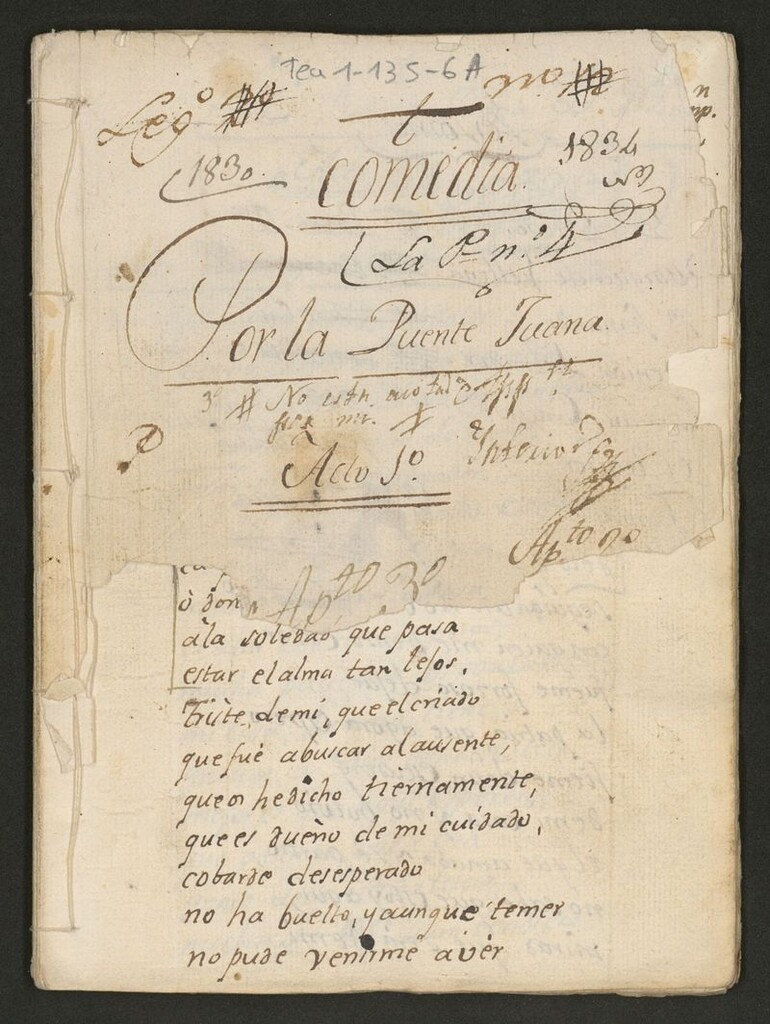 tea 1-135-6A
Leg.º nº
t
1830. comedia. 1834
La Pᵉ n.º 4
Por la Puente Juana.
3º # No estn
por mi. #
Acto 1º.
Apto 20
Apto 30
ò don
ala soledad que pasa
estar el alma tan lejos,
Triste, demi, que el criado
que fuè abuscar alausente,
que os hedicho tiernamente,
que es dueño de mi cuidado,
cobarde desesperado
no ha buelto, yaunque temer
no pude venirme avér